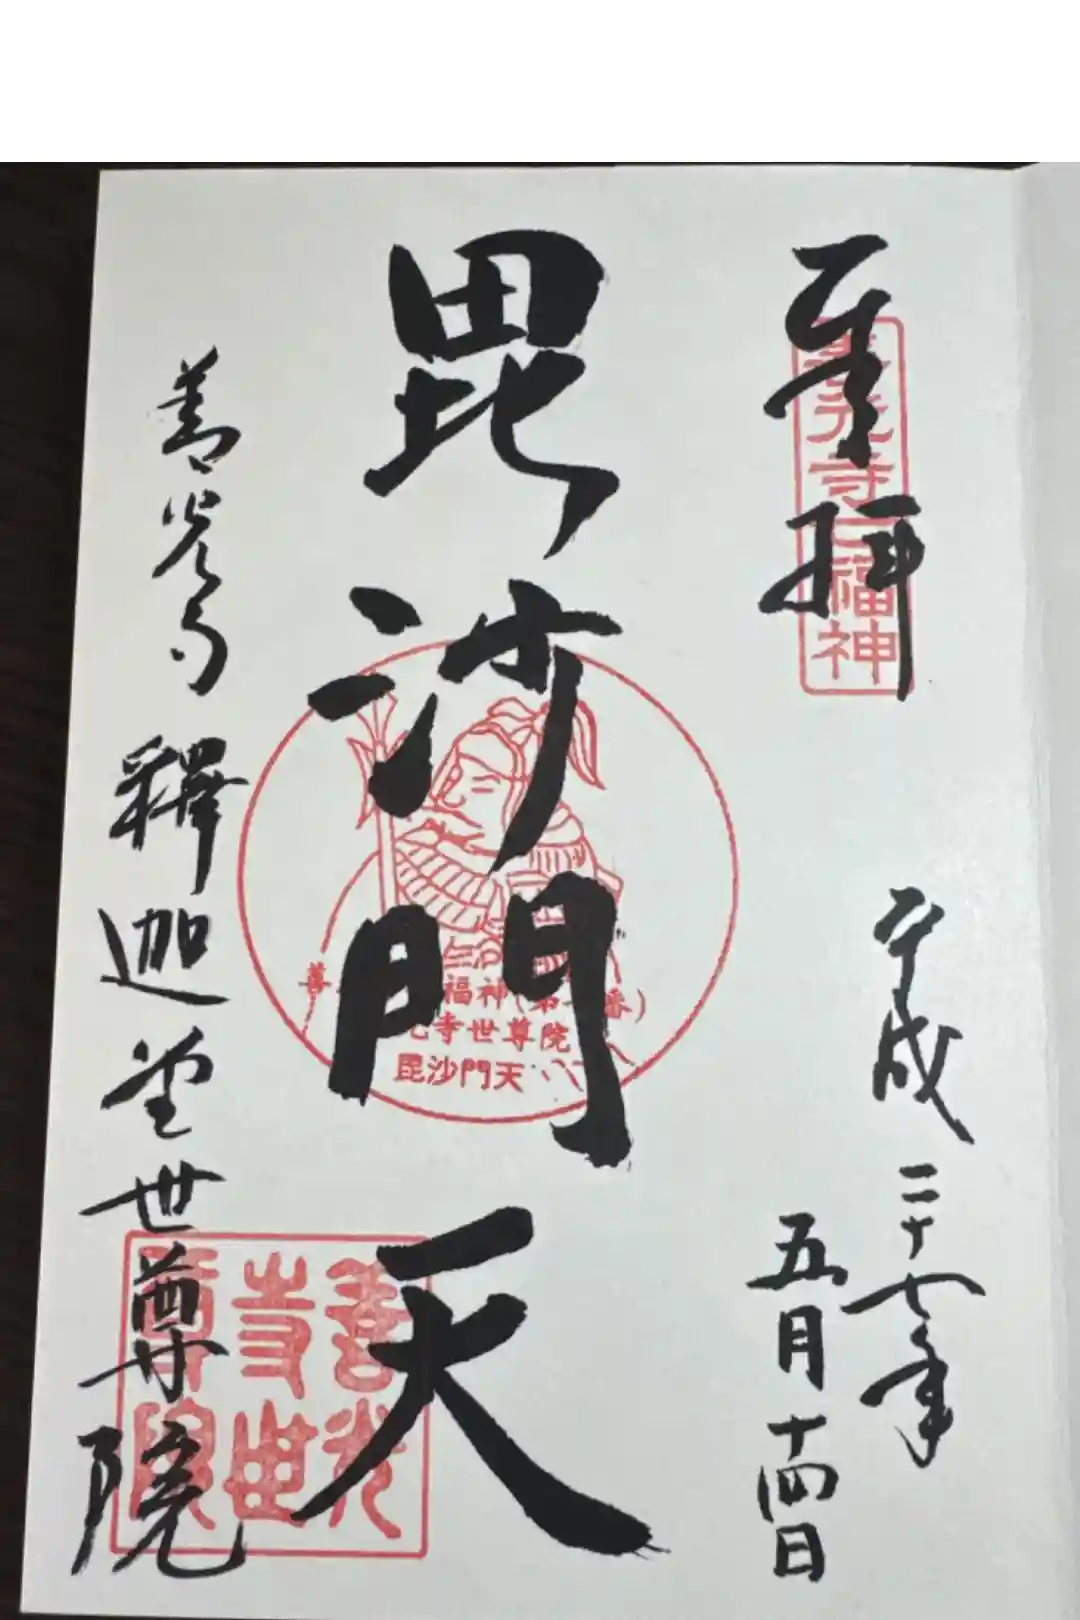 奉拝
善光寺七福神
平成二十七年
五月十四日
毘沙門天
福神(第
寺世尊院
毘沙門天
善光寺 釋迦堂世尊院
善光
寺世
尊院